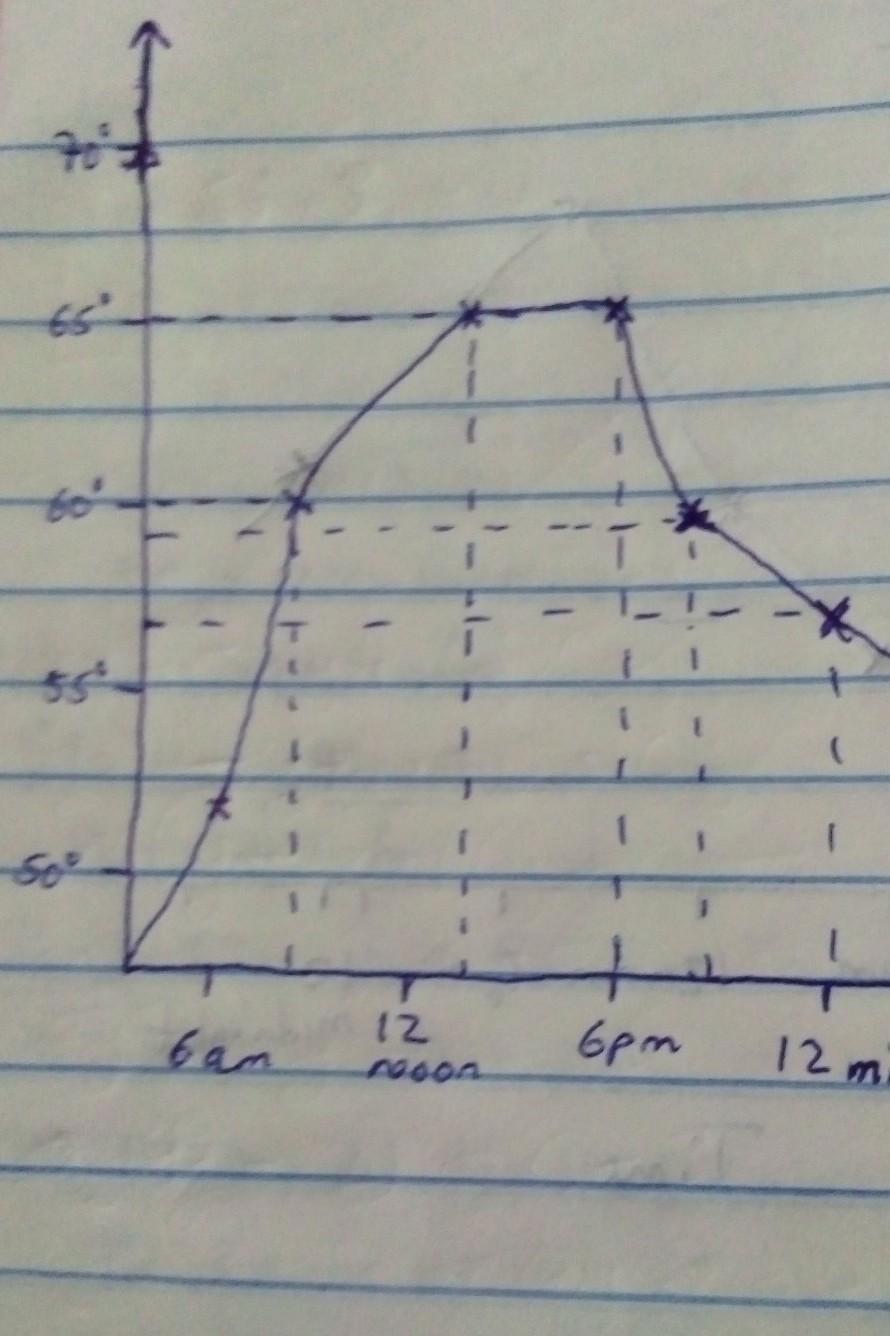 70°
65°
60°
55°
50°
6am
12
nooon
6pm
12 mi